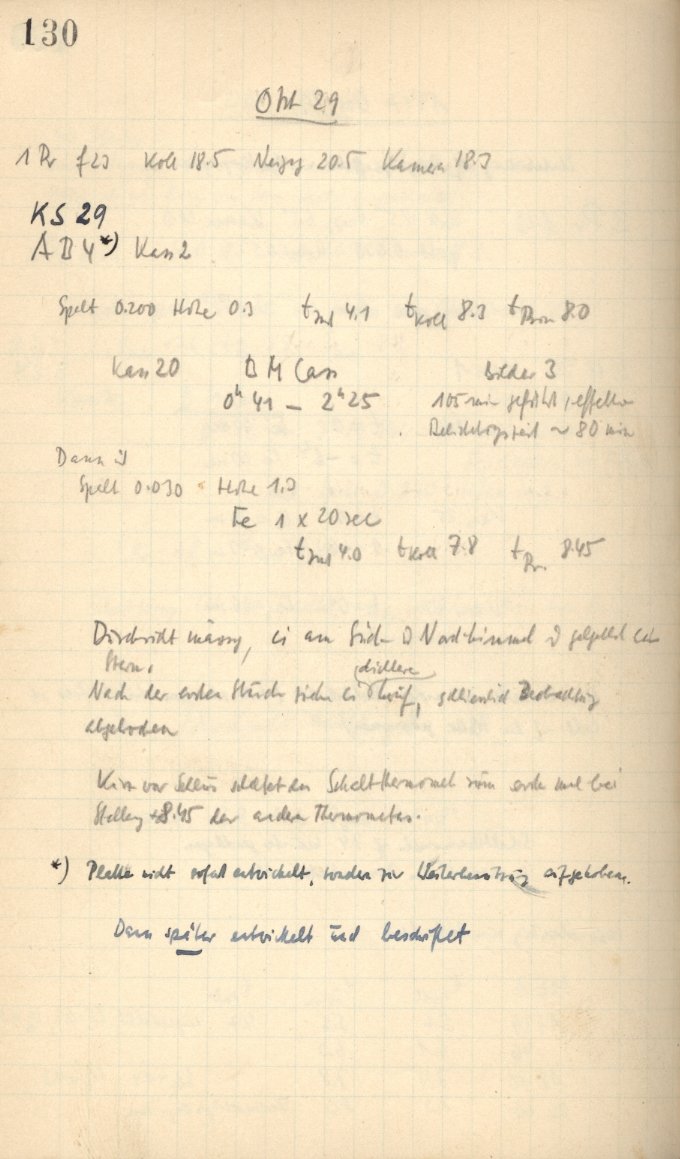 130
Okt 29
1 Pr f23 Koll 18.5 Neigg 20.5 Kamera 18.3
KS 29
AB4*) Kass 2
Spalt 0.200 Höhe 0.3 t 4.1 tKoll 8.3 t 8.0
Kass 20 BM Cass Bilder 3
0h 41 — 2h 25 105 min geführt, effektive
Belichtungszeit ~ 80 min
Dann
Spalt 0.030 Höhe 1.3
Fe 1 x 20 sec
t 4.0 tKoll 7.8 tPr. 8.45
Durchsicht mässig, am
Stern.
dichtere
Nach der ersten Stunde auf, schliesslich Beobachtung
abgebrochen
Kurz vor Schluss das Schaltthermometer zum ersten mal bei
Stellung +8.45 des anderen Thermometers.
*) Platte nicht sofort entwickelt, sondern zur Weiterbenutzung aufgehoben.
Dann später entwickelt und beschriftet